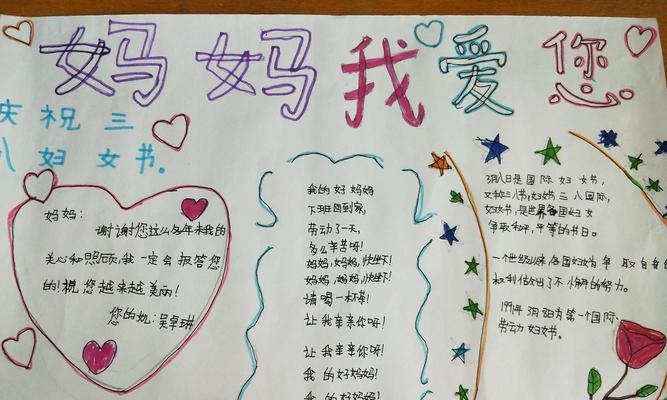 妈妈我爱您
庆祝三
八妇女节。
妈妈：
谢谢您这么多年来我的
关心和照顾,我一定会报答您
的!祝您越来越美丽!
您的女儿:吴卓琳
我的好妈妈
下班回到家,
劳动了一天,
多么辛苦呀!
妈妈,妈妈,快坐下!
妈妈,妈妈,快坐下!
请喝一杯茶!
让我亲亲你呀!
让我亲亲你呀!
我的好妈妈!
我的好妈妈!
3月八日是国际妇女节,
又称三八节,妇女节三八国际,
妇女节,是世界各国妇女
争取和平,平等的节日。
一个世纪以来,各国妇女为争取自身的
权利做出了不懈的努力。
月 日为第一个国际
劳动妇女节。